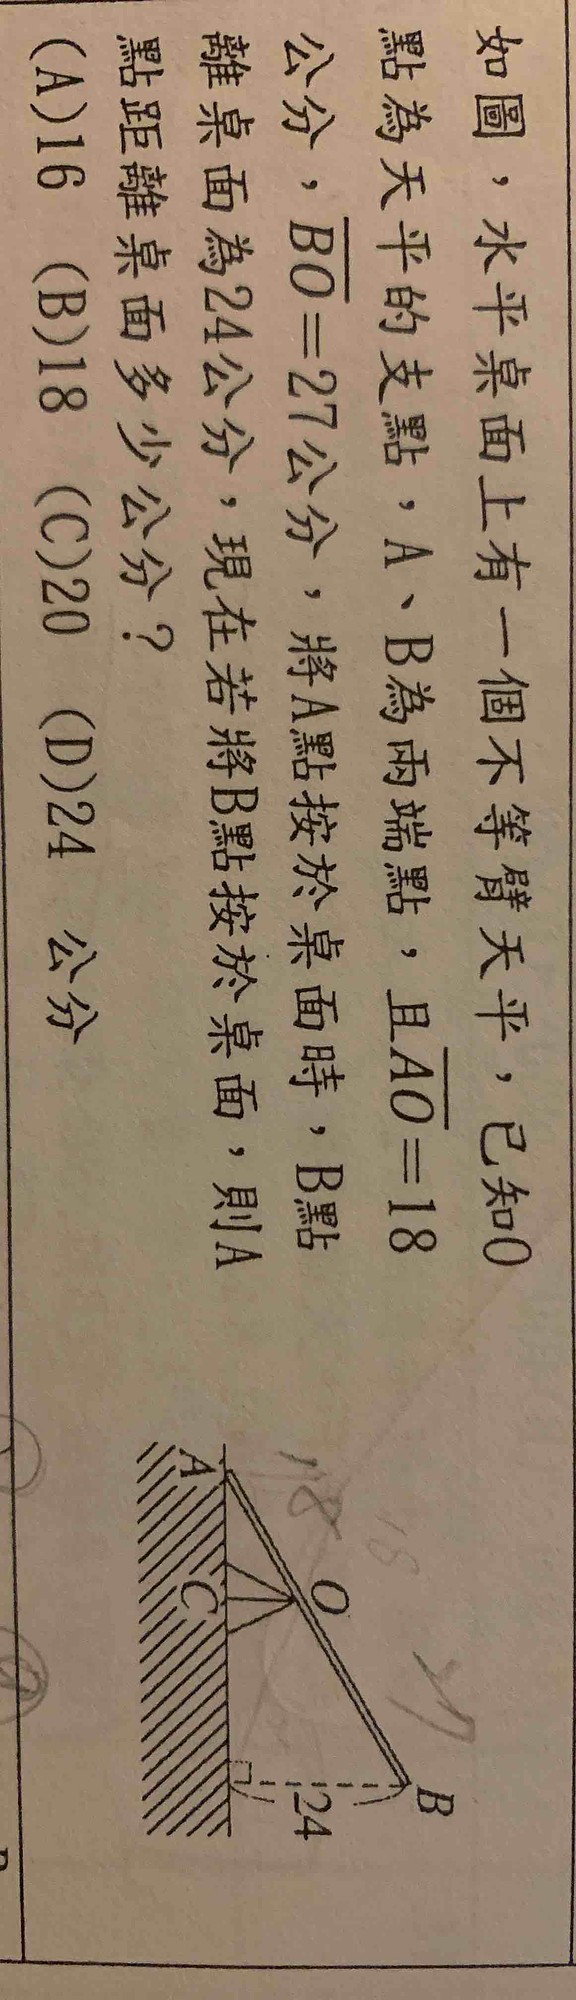 如圖，水平桌面上有一個不等臂天平，已知O
點為天平的支點，A、B為兩端點，且AO=18
公分，BO=27公分，將A點按於桌面時，B點
離桌面為24公分，現在若將B點按於桌面，則A
點距離桌面多少公分？
(A)16 (B)18 (C)20 (D)24 公分
B
27
O
18
24
A
C